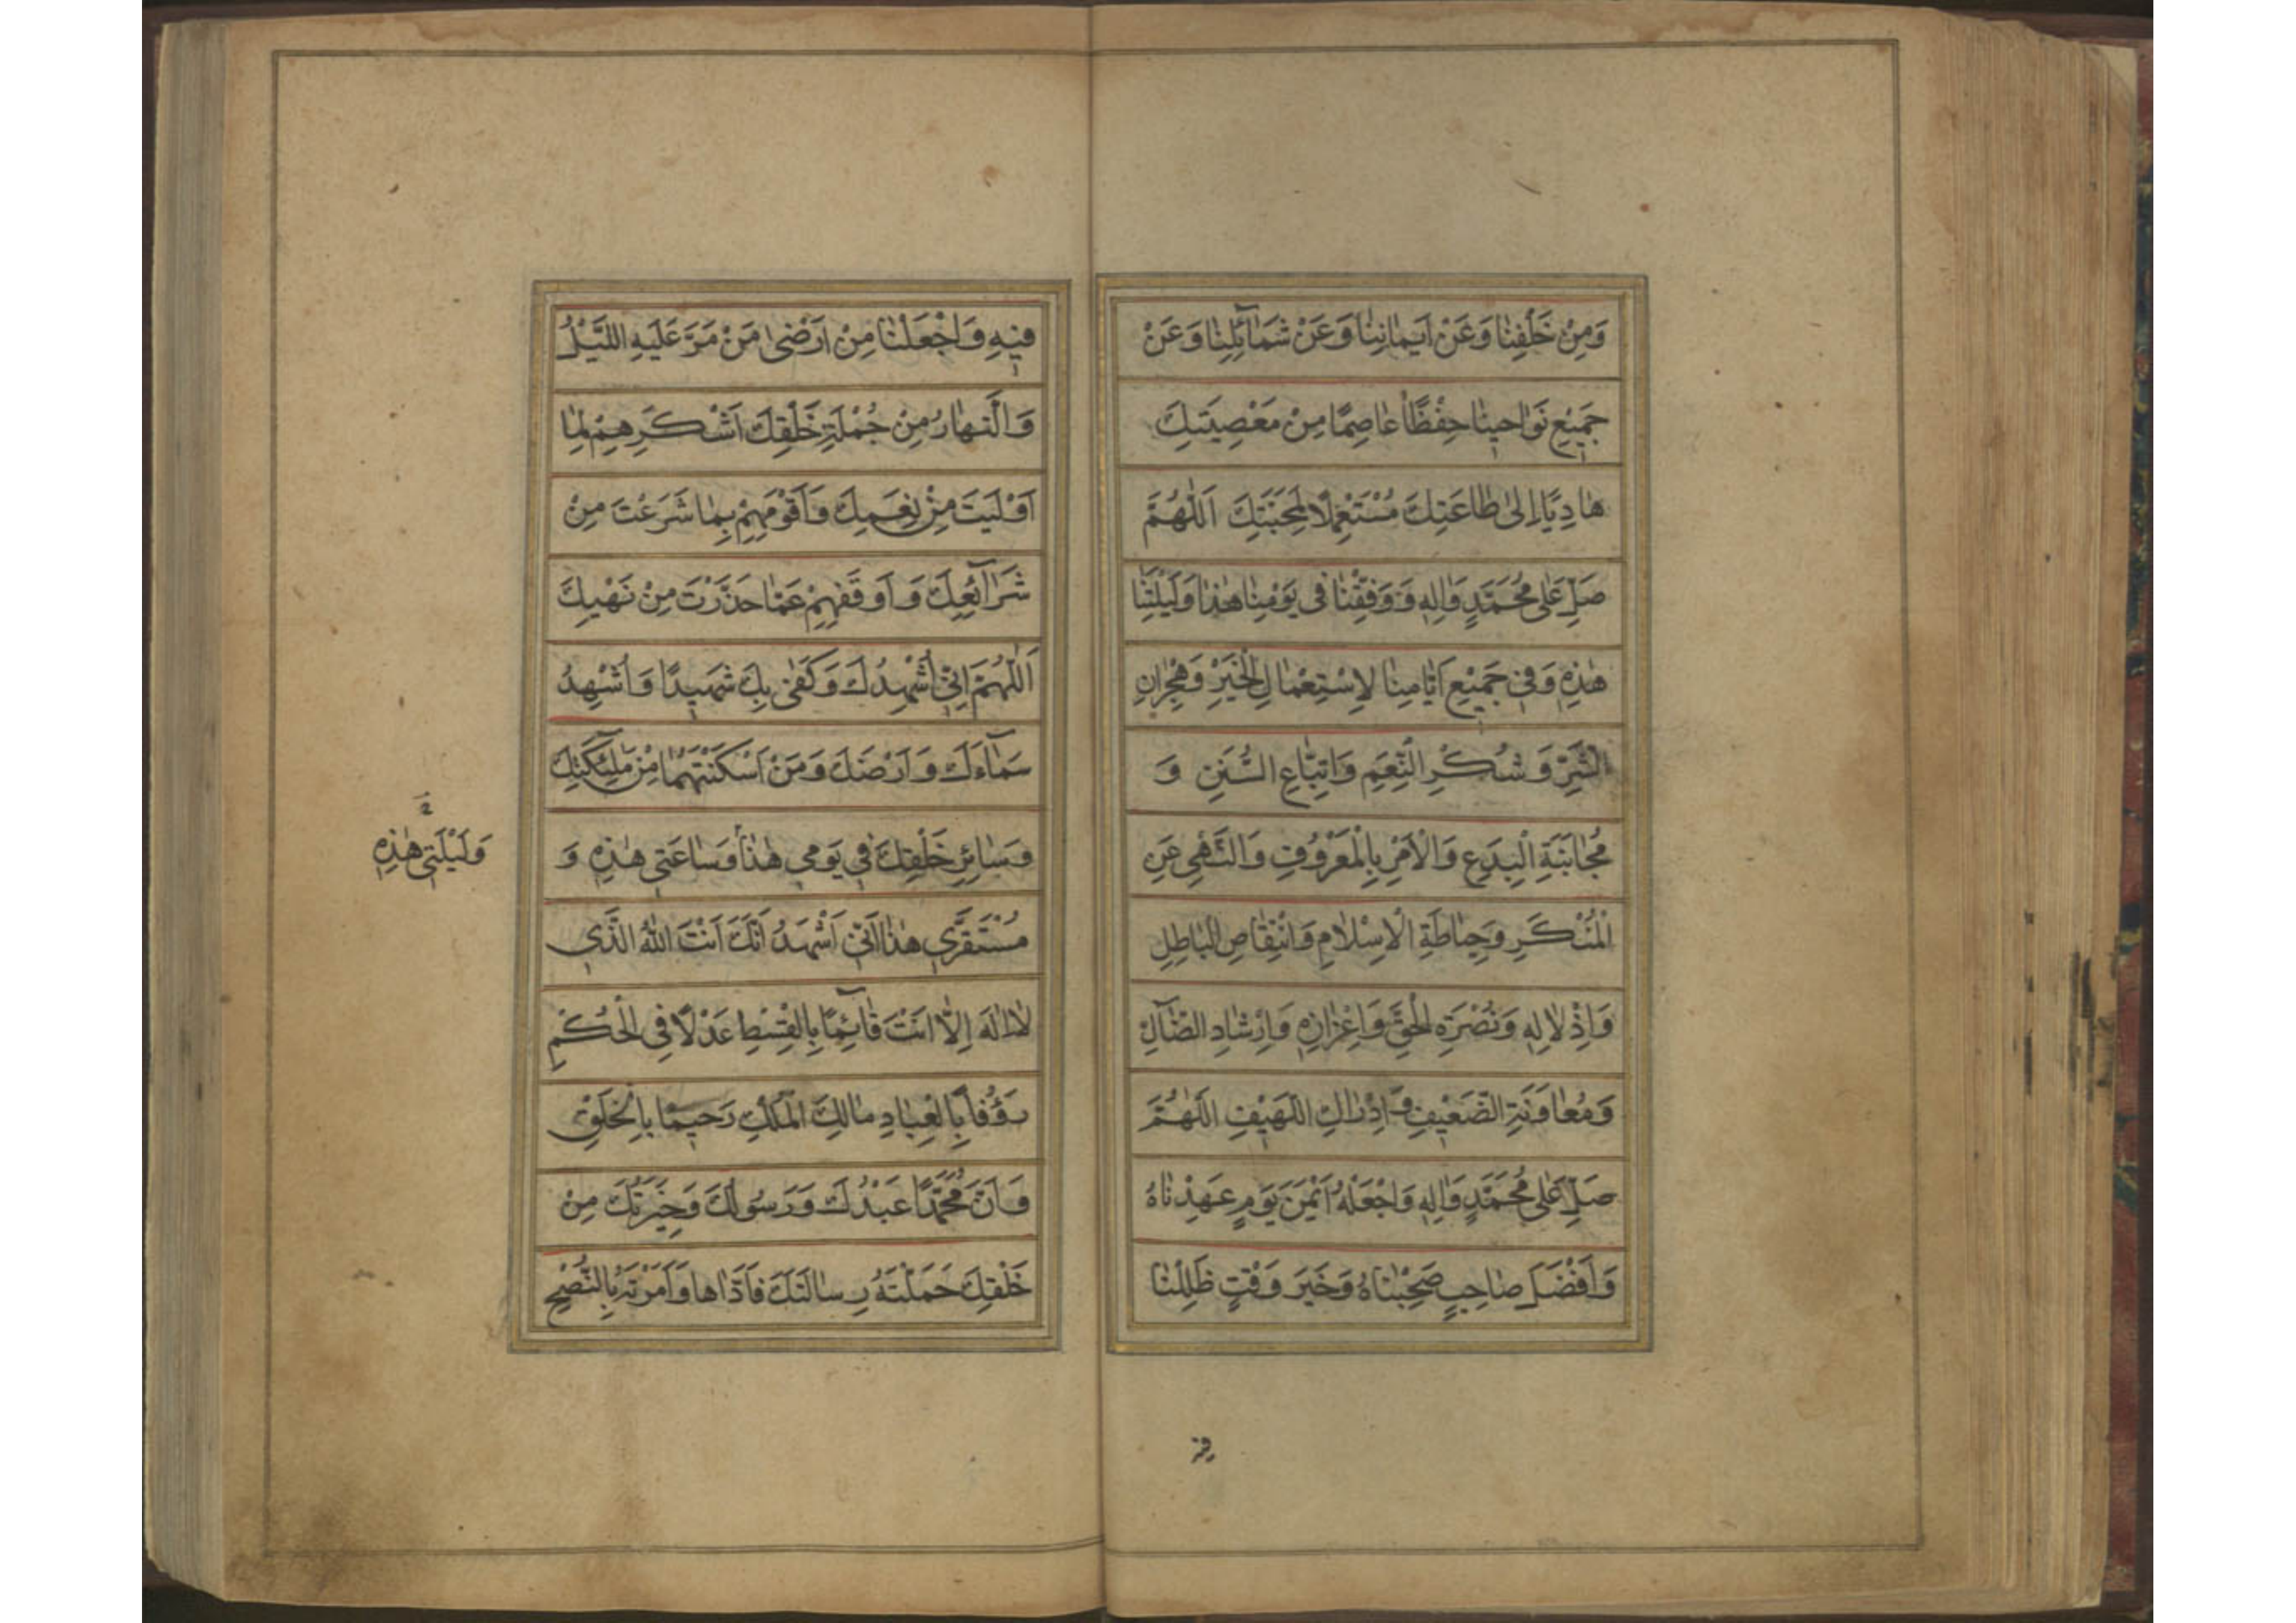 وَمِنْ خَلْفِنٰا وَعَنْ اَيْمٰانِنٰا وَعَنْ شَمٰآئِلِنٰا وَعَنْ
جَمٖيعِ نَوٰاحٖينٰا حِفْظًا عٰاصِمًا مِنْ مَعْصِيَتِكَ
هٰادِيًا اِلىٰ طٰاعَتِكَ مُسْتَعْمِلًا لِمَحَبَّتِكَ اَللّٰهُمَّ
صَلِّ عَلىٰ مُحَمَّدٍ وَاٰلِهٖ وَ وَفِّقْنٰا فى يَوْمِنٰا هٰذٰا وَلَيْلَتِنٰا
هٰذِهٖ وَفٖى جَمٖيعِ اَيّٰامِنٰا لِاسْتِعْمٰالِ الْخَيْرِ وَهِجْرٰانِ
الشَّرِّ وَ شُكْرِ النِّعَمِ وَاتِّبٰاعِ السُّنَنِ وَ
مُجٰانَبَةِ الْبِدَعِ وَالْاَمْرِ بِالْمَعْرُوفِ وَالنَّهْىِ عَنِ
الْمُنْكَرِ وَحِيٰاطَةِ الْاِسْلٰامِ وَانْتِقٰاصِ الْبٰاطِلِ
وَاِذْلٰالِهٖ وَنُصْرَةِ الْحَقِّ وَاِعْزٰازِهٖ وَاِرْشٰادِ الضّٰآلِّ
وَمُعٰاوَنَةِ الضَّعٖيفِ وَ اِدْرٰاكِ اللَّهٖيفِ اَللّٰهُمَّ
صَلِّ عَلىٰ مُحَمَّدٍ وَاٰلِهٖ وَاجْعَلْهُ اَيْمَنَ يَوْمٍ عَهِدْنٰاهُ
وَاَفْضَلَ صٰاحِبٍ صَحِبْنٰاهُ وَخَيْرَ وَقْتٍ ظَلِلْنٰا
فيه
فٖيهِ وَاجْعَلْنٰا مِنْ اَرْضىٰ مَنْ مَرَّ عَلَيْهِ اللَّيْلُ
وَالنَّهٰارُ مِنْ جُمْلَةِ خَلْقِكَ اَشْكَرِهِمْ لِمٰا
اَوْلَيْتَ مِنْ نِعَمِكَ وَاَقْوَمِهِمْ بِمٰا شَرَعْتَ مِنْ
شَرٰآئِعِكَ وَ اَوْقَفِهِمْ عَمّٰا حَذَّرْتَ مِنْ نَهْيِكَ
اَللّٰهُمَّ اِنّٖى اُشْهِدُكَ وَكَفىٰ بِكَ شَهٖيدًا وَاُشْهِدُ
سَمٰآءَكَ وَ اَرْضَكَ وَمَنْ اَسْكَنْتَهُمٰا مِنْ مَلٰئِكَتِكَ
وَسٰائِرِ خَلْقِكَ فٖى يَوْمٖى هٰذٰا وَسٰاعَتٖى هٰذِهٖ وَ
وَلَيْلَتٖى هٰذِهٖ
مُسْتَقَرّٖى هٰذٰا اَنّٖى اَشْهَدُ اَنَّكَ اَنْتَ اللّٰهُ الَّذٖى
لٰا اِلٰهَ اِلّٰا اَنْتَ قٰآئِمًا بِالْقِسْطِ عَدْلًا فِى الْحُكْمِ
رَؤُفًا بِالْعِبٰادِ مٰالِكَ الْمُلْكِ رَحٖيمًا بِالْخَلْقِ
وَاَنَّ مُحَمَّدًا عَبْدُكَ وَرَسُولُكَ وَخِيَرَتُكَ مِنْ
خَلْقِكَ حَمَّلْتَهُ رِسٰالَتَكَ فَاَدّٰاهٰا وَاَمَرْتَهُ بِالنُّصْحِ